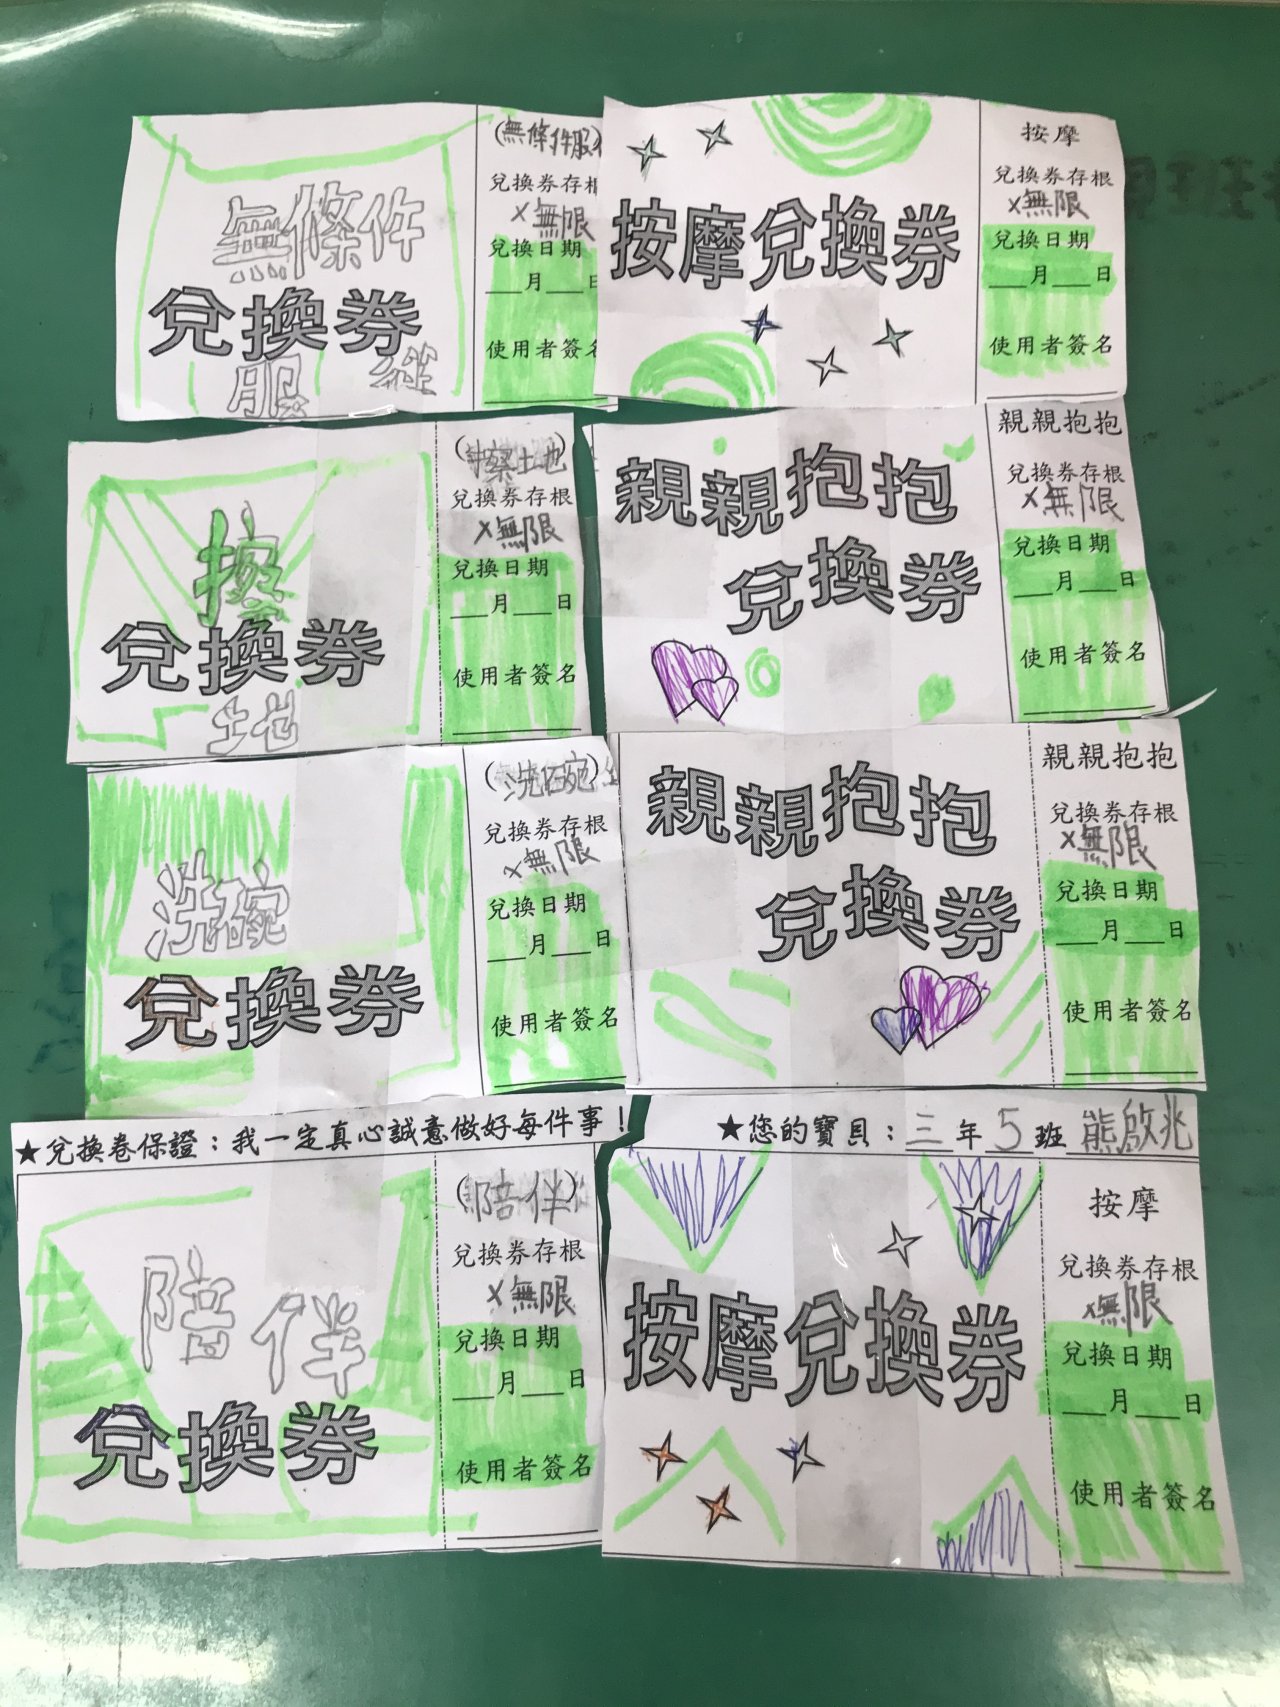 (無條件服從)
無條件
兌換券
服從
兌換券存根
×無限
兌換日期
__月__日
使用者簽名
按摩兌換券
按摩
兌換券存根
×無限
兌換日期
__月__日
使用者簽名
擦
兌換券
土地
(擦土地)
兌換券存根
×無限
兌換日期
__月__日
使用者簽名
親親抱抱
兌換券
親親抱抱
兌換券存根
×無限
兌換日期
__月__日
使用者簽名
洗碗
兌換券
(洗碗)
兌換券存根
×無限
兌換日期
__月__日
使用者簽名
親親抱抱
兌換券
親親抱抱
兌換券存根
×無限
兌換日期
__月__日
使用者簽名
★兌換卷保證：我一定真心誠意做好每件事！
★您的寶貝：三年5班熊啟兆
陪伴
兌換券
(陪伴)
兌換券存根
×無限
兌換日期
__月__日
使用者簽名
按摩兌換券
按摩
兌換券存根
×無限
兌換日期
__月__日
使用者簽名